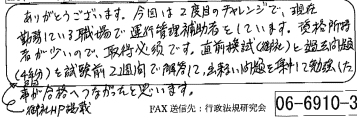 ありがとうございます。今回は2度目のチャレンジで、現在
勤務している職場で運行管理補助者をしています。資格所持
者が少いので、取得必須です。直前模試(1回)と過去問題
(4回分)を試験前2週間で解答し、出来ない問題を集中して勉強した
事が合格へつながったと思います。
HP掲載
FAX送信先:行政法規研究会
06-6910-3